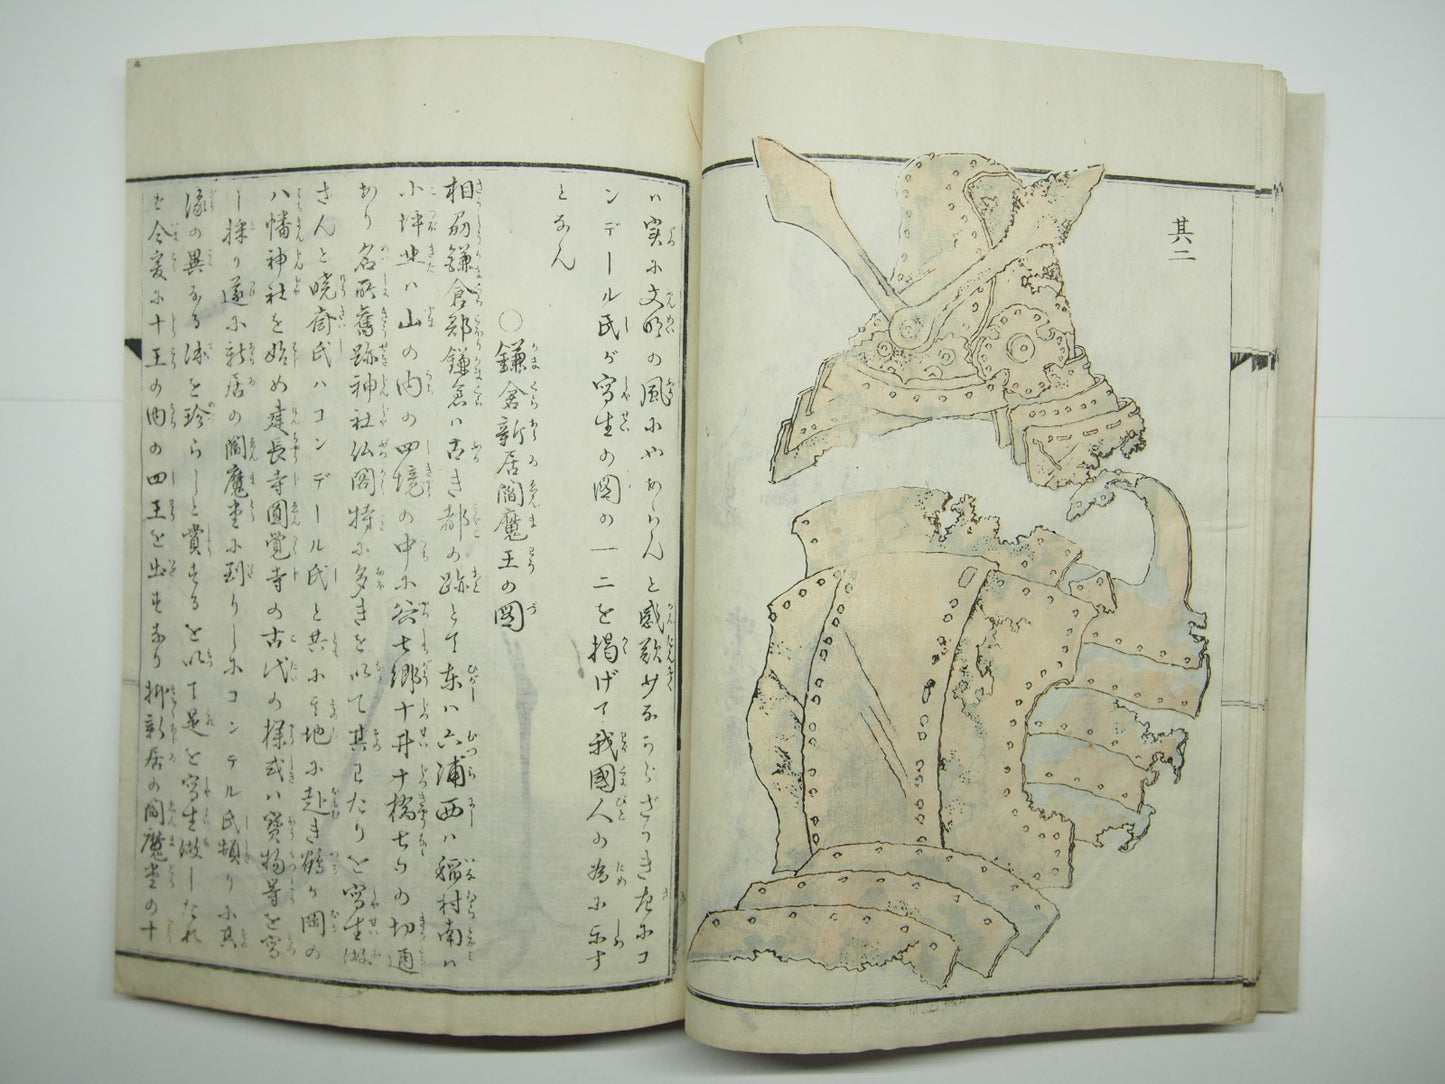 其二
ハ実に文明の風にやあらんと感歎少なからざりき左にコ
ンデール氏が写生の図の一二を掲げて我國人の為に示す
となん
〇鎌倉新居閻魔王の図
相刕鎌倉郡鎌倉ハ古き都の跡とて東ハ六浦西ハ稲村南ハ
小坪北ハ山の内の四境の中に谷七郷十井十橋七口の切通
あり名所舊跡神社仏閣特に多きを以て其わたりを写生做
さんと暁斎氏ハコンデール氏と共に其地に赴き鶴ヶ岡の
八幡神社を始め建長寺圓覚寺の古代の様式ハ寳物等を写
し採り遂に新居の閻魔堂に到りしにコンデル氏頻りに其
像の異なる体を珍らしと賞するを以て是を写生做したれ
ど今爰に十王の内の四王を出すなり抑新居の閻魔堂の十